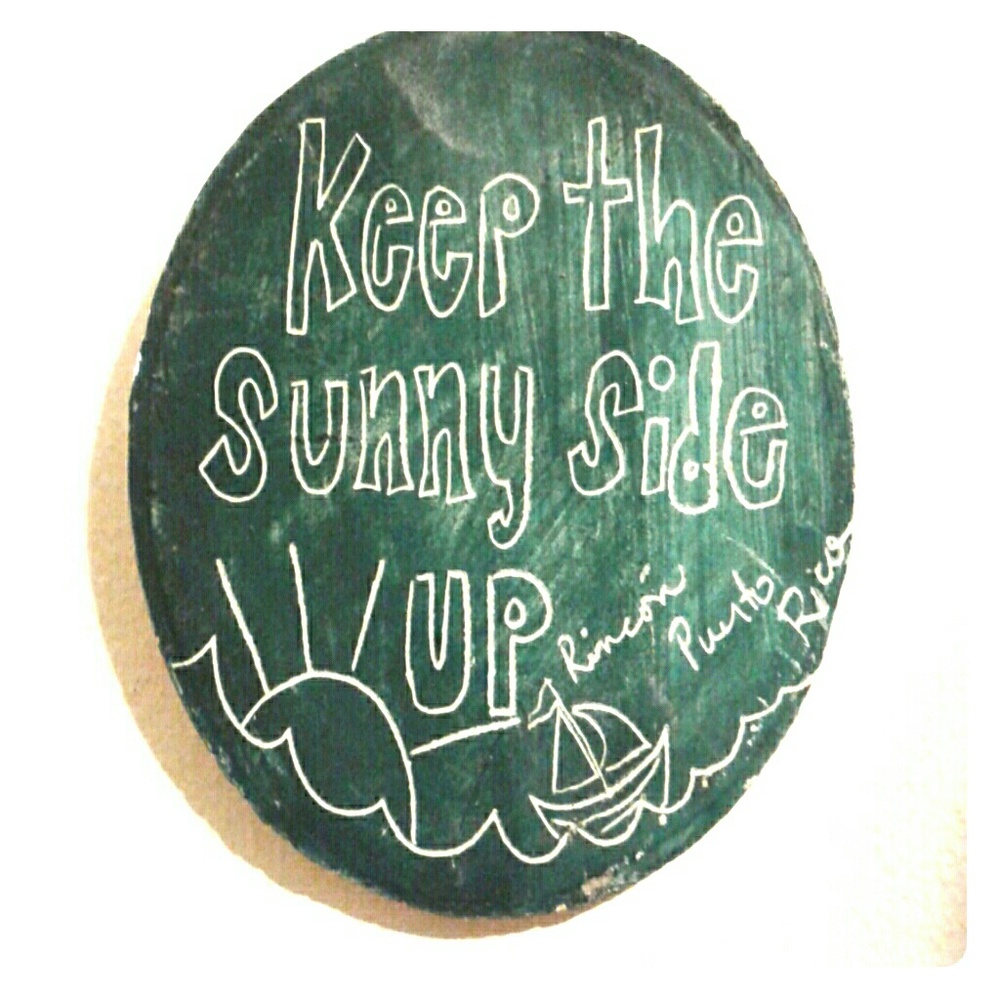 Keep the
sunny side
up
Rincón
Puerto
Rico